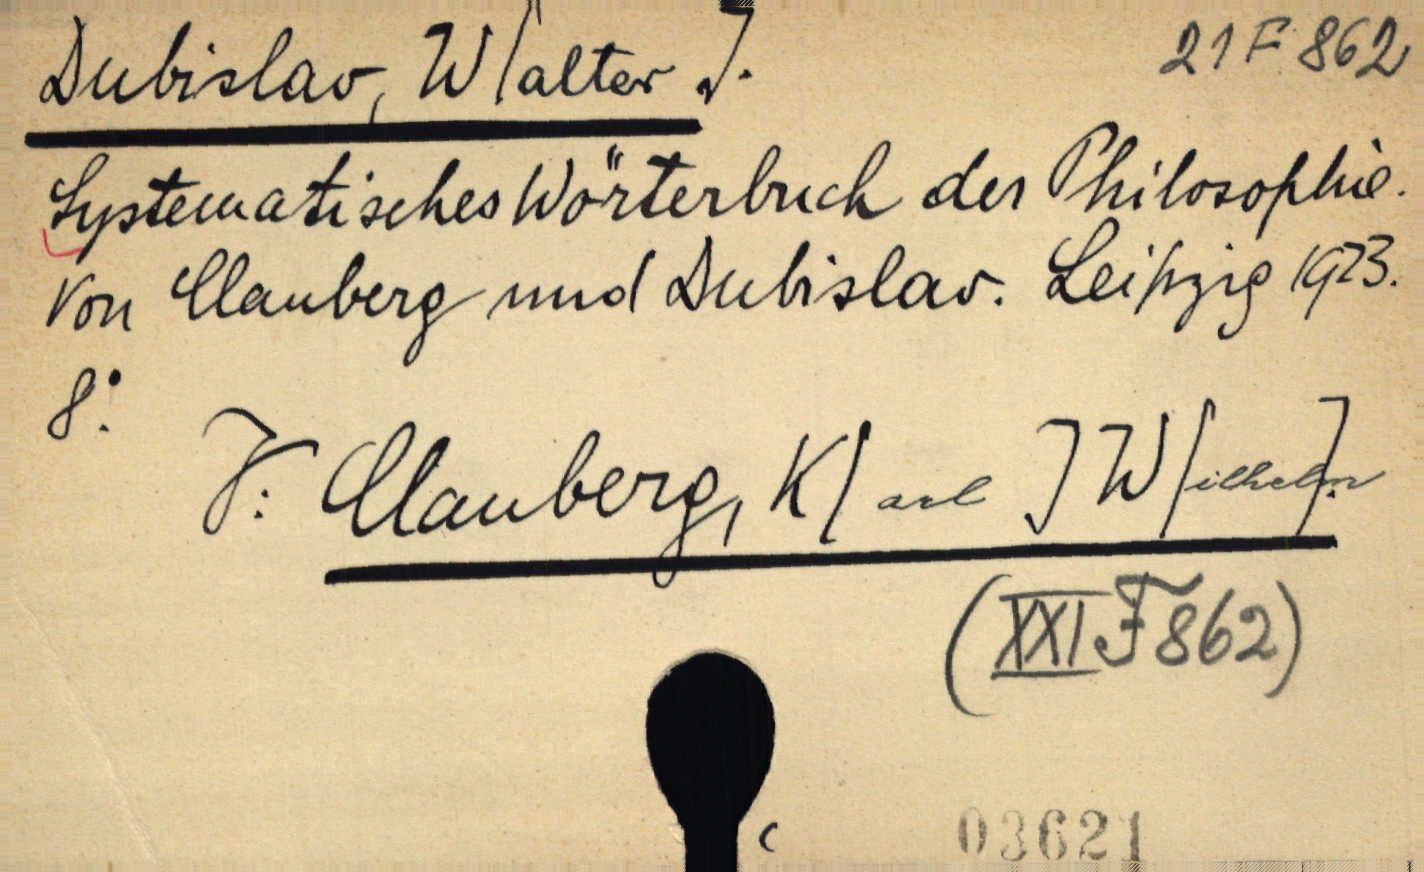 Dubislav, W[alter].
21 F 862
Systematisches Wörterbuch der Philosophie.
Von Clauberg und Dubislav. Leipzig 1923.
8°.
V: Clauberg, K[arl] W[ilhelm].
(XXI F 862)
c
03621